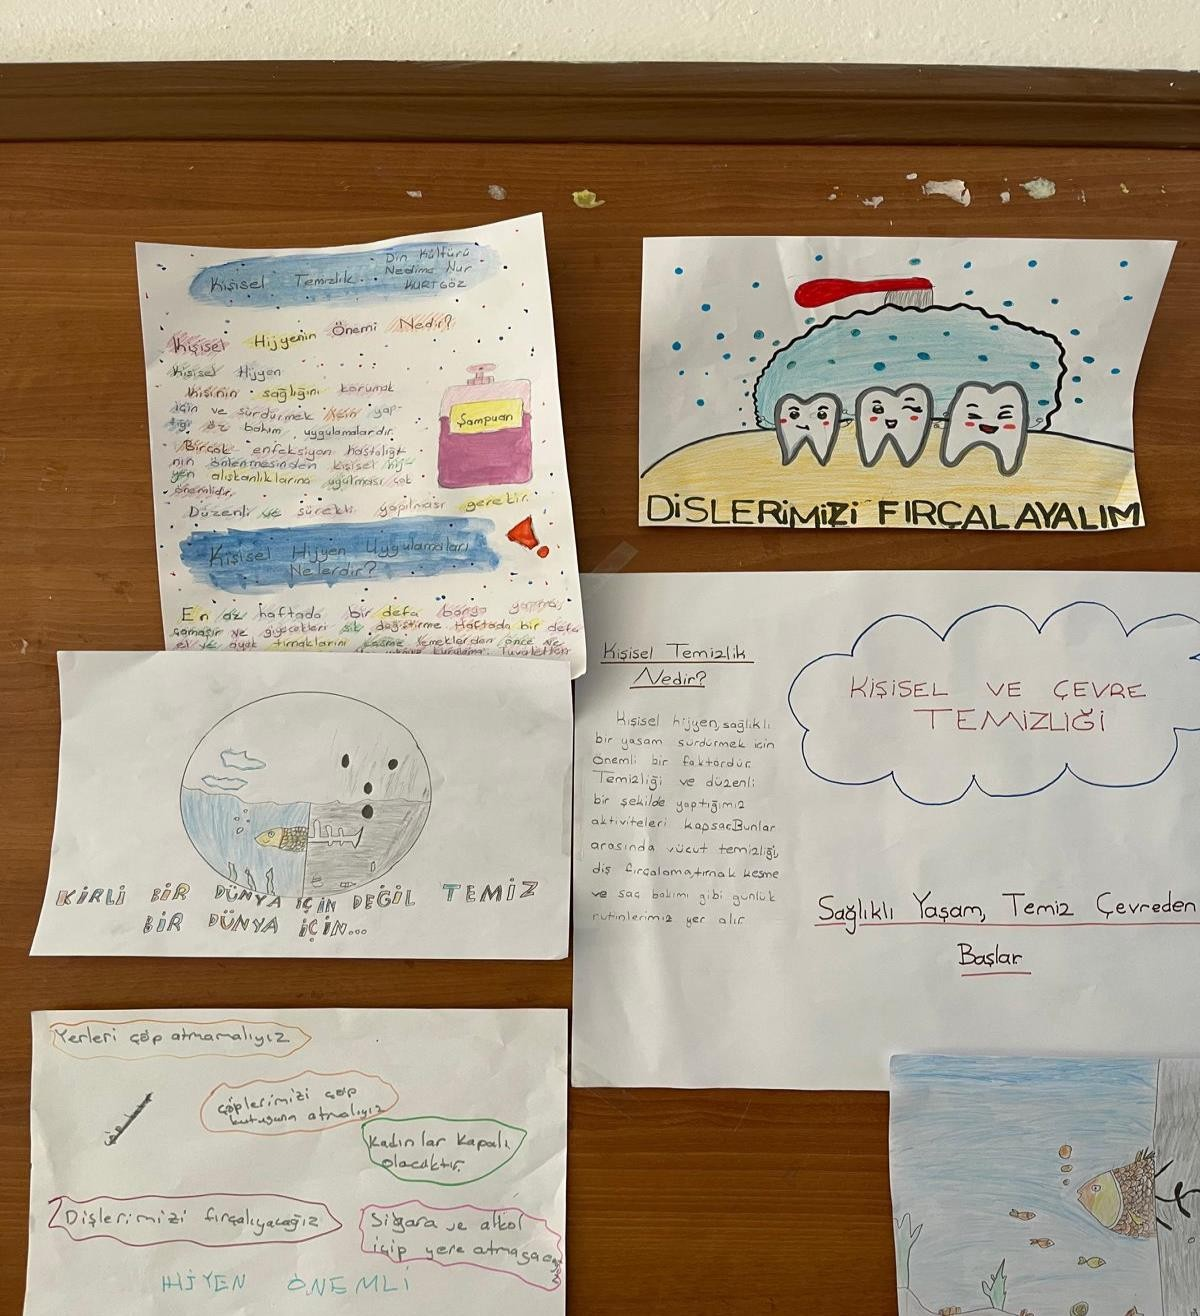 Kişisel Temizlik
Din Kültürü
Nedime Nur
KURTGÖZ
Kişisel Hijyenin Önemi Nedir?
Kişisel Hijyen
Kişinin sağlığını korumak
için ve sürdürmek için yap-
tığı öz bakım uygulamalardır.
Birçok enfeksiyon hastalığı-
nın önlenmesinden kişisel hij-
yen alışkanlıklarına uyulması çok
önemlidir.
Düzenli ve sürekli yapılması gerekir.
Şampuan
Kişisel Hijyen Uygulamaları
Nelerdir?
En az haftada bir defa banyo yapma,
çamaşır ve giysecekleri sık değiştirme Haftada bir defa
el ve ayak tırnaklarını kesme Yemeklerden önce ve
DİSLERİMİZİ FIRÇALAYALIM
Kişisel Temizlik
Nedir?
Kişisel hijyen, sağlıklı
bir yaşam sürdürmek için
önemli bir faktördür.
Temizliği ve düzenli
bir şekilde yaptığımız
aktiviteleri kapsar.Bunlar
arasında vücut temizliği,
diş fırçalama,tırnak kesme
ve saç bakımı gibi günlük
rutinlerimiz yer alır.
KİŞİSEL VE ÇEVRE
TEMİZLİĞİ
Sağlıklı Yaşam, Temiz Çevreden
Başlar
KİRLİ BİR DÜNYA İÇİN DEĞİL TEMİZ
BİR DÜNYA İÇİN...
Yerleri çöp atmamalıyız
çöplerimizi çöp
kutusuna atmalıyız
Kadınlar kapalı
olacaktır.
Dişlerimizi fırçalıyacağız
Sigara ve alkol
içip yere atmayacağız
HİJYEN ÖNEMLİ